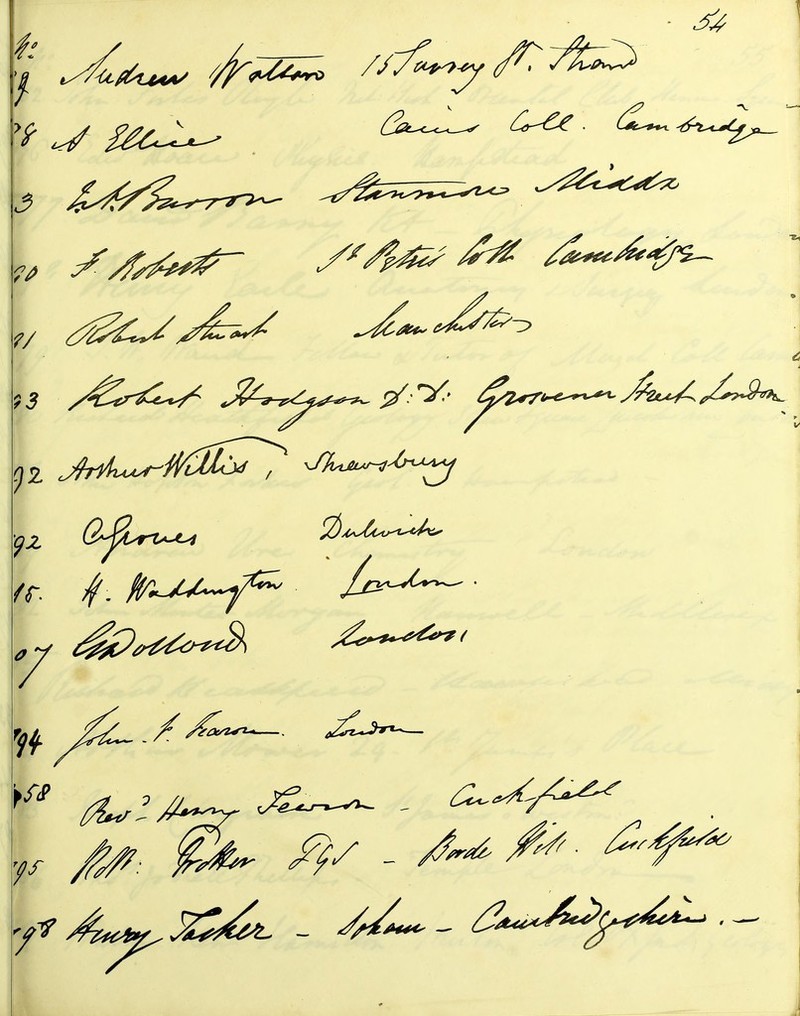 54
No
9 Andrew Watson 15 Surrey St. Strand
8 A Ellice Caius Coll. Cambridge
3 Barron Stanmore Middx
20 F. Roberts St Peter's Coll Cambridge
21 Robert Stuart Manchester
23 Robert Hodgson D:D: Grosvenor Street London
92 Arthur Willis, Shrewsbury
92 C Groves Dulwich
15. H. Waddington London.
07 G Dollond London
94 John F. Fearon. London
58 Revd- Henry Fearon - Cuckfield
95 Robt: Trotter FGS - Borde Hill. Cuckfield
98 Henry Tasker - Soham - Cambridgeshire. -